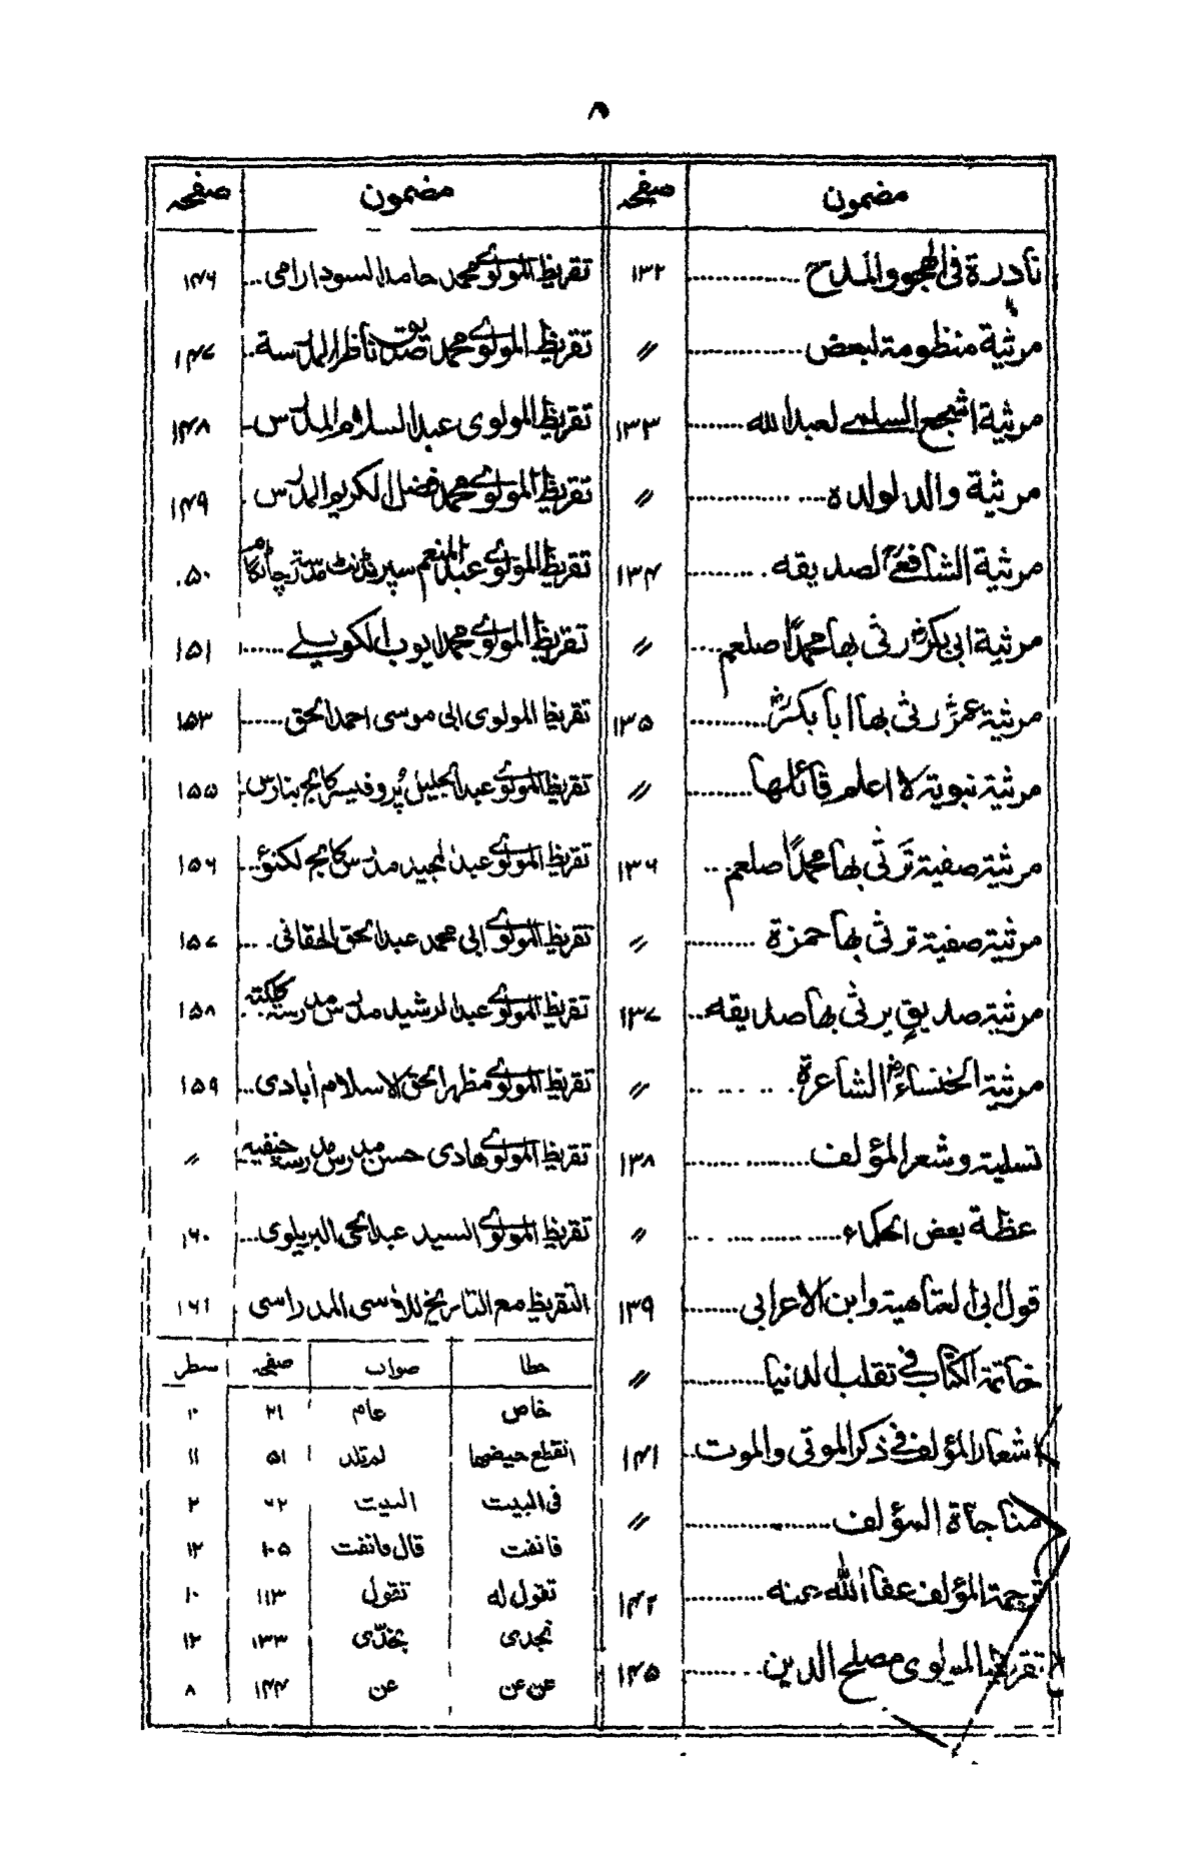 ٨
مضمون صفحه
نادرة فى الهجو والمدح ۱۳۲
مرثية منظومة لبعض 〃
مرثية اشجع السلمى لعبدالله ۱۳۳
مرثية والد لولده 〃
مرثية الشافعى لصديقه ۱۳۴
مرثية ابى بكرؓ رثى بها محمدًا صلعم 〃
مرثية عمرؓ رثى بها ابا بكرؓ ۱۳۵
مرثية نبوية لا اعلم قائلها 〃
مرثية صفية تَرثى بها محمدًا صلعم ۱۳۶
مرثية صفية ترثى بها حمزة 〃
مرثية صديقٍ يرثى بها صديقه ۱۳۷
مرثية الخنساءؓ الشاعرة 〃
تسلية وشعر المؤلف ۱۳۸
عظة بعض الحكماء 〃
قول ابى العتاهية وابن الاعرابى ۱۳۹
خاتمة الكتاب فى تقلب الدنيا 〃
اشعار المؤلف فى ذكر الموتى والموت ۱۴۱
مناجاة المؤلف 〃
ترجمة المؤلف عفا الله بمنه ۱۴۲
تقريظ المولوى مصلح الدين ۱۴۵
مضمون صفحه
تقريظ المولوى محمد حامد السودارامى ۱۴۶
تقريظ المولوى محمد صديق ناظر المدرسة ۱۴۷
تقريظ المولوى عبد السلام المدرس ۱۴۸
تقريظ المولوى محمد فضل الكريم المدرس ۱۴۹
تقريظ المولوى عبد المنعم سپرنٹنڈنٹ مدرسه چاٹگام ۵۰
تقريظ المولوى محمد ايوب الكويلے ۱۵۱
تقريظ المولوى ابى موسى احمد الحق ۱۵۳
تقريظ المولوى عبد الجليل پُروفيسر كالج بنارس ۱۵۵
تقريظ المولوى عبد المجيد مدرس كالج لكنؤ ۱۵۶
تقريظ المولوى ابى محمد عبد الحق الحقانى ۱۵۷
تقريظ المولوى عبد الرشيد مدرس مدرسه كلكته ۱۵۸
تقريظ المولوى مظهر الحق الاسلام أبادى ۱۵۹
تقريظ المولوى هادى حسن مدرس مدرسه حنفيه 〃
تقريظ المولوى السيد عبد الحى البريلوى ۱۶۰
التقريظ مع التاريخ للاؤسى المدراسى ۱۶۱
خطا صواب صفحه سطر
خاص عام ۲۱ ۱۰
انقطع حيضها لم تلد ۵۱ ۱۱
فى البيت البيت ۶۲ ۲
فانفت قال فانفت ۱۰۵ ۱۲
تقول له تقول ۱۱۳ ۱۰
نجدى يخدّى ۱۳۳ ۱۲
عن عن عن ۱۴۴ ۸